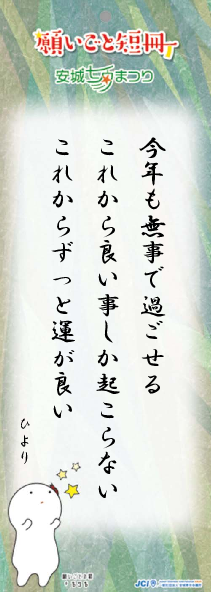 願いごと短冊
安城七夕まつり
今年も無事で過ごせる
これから良い事しか起こらない
これからずっと運が良い
ひより
JCI